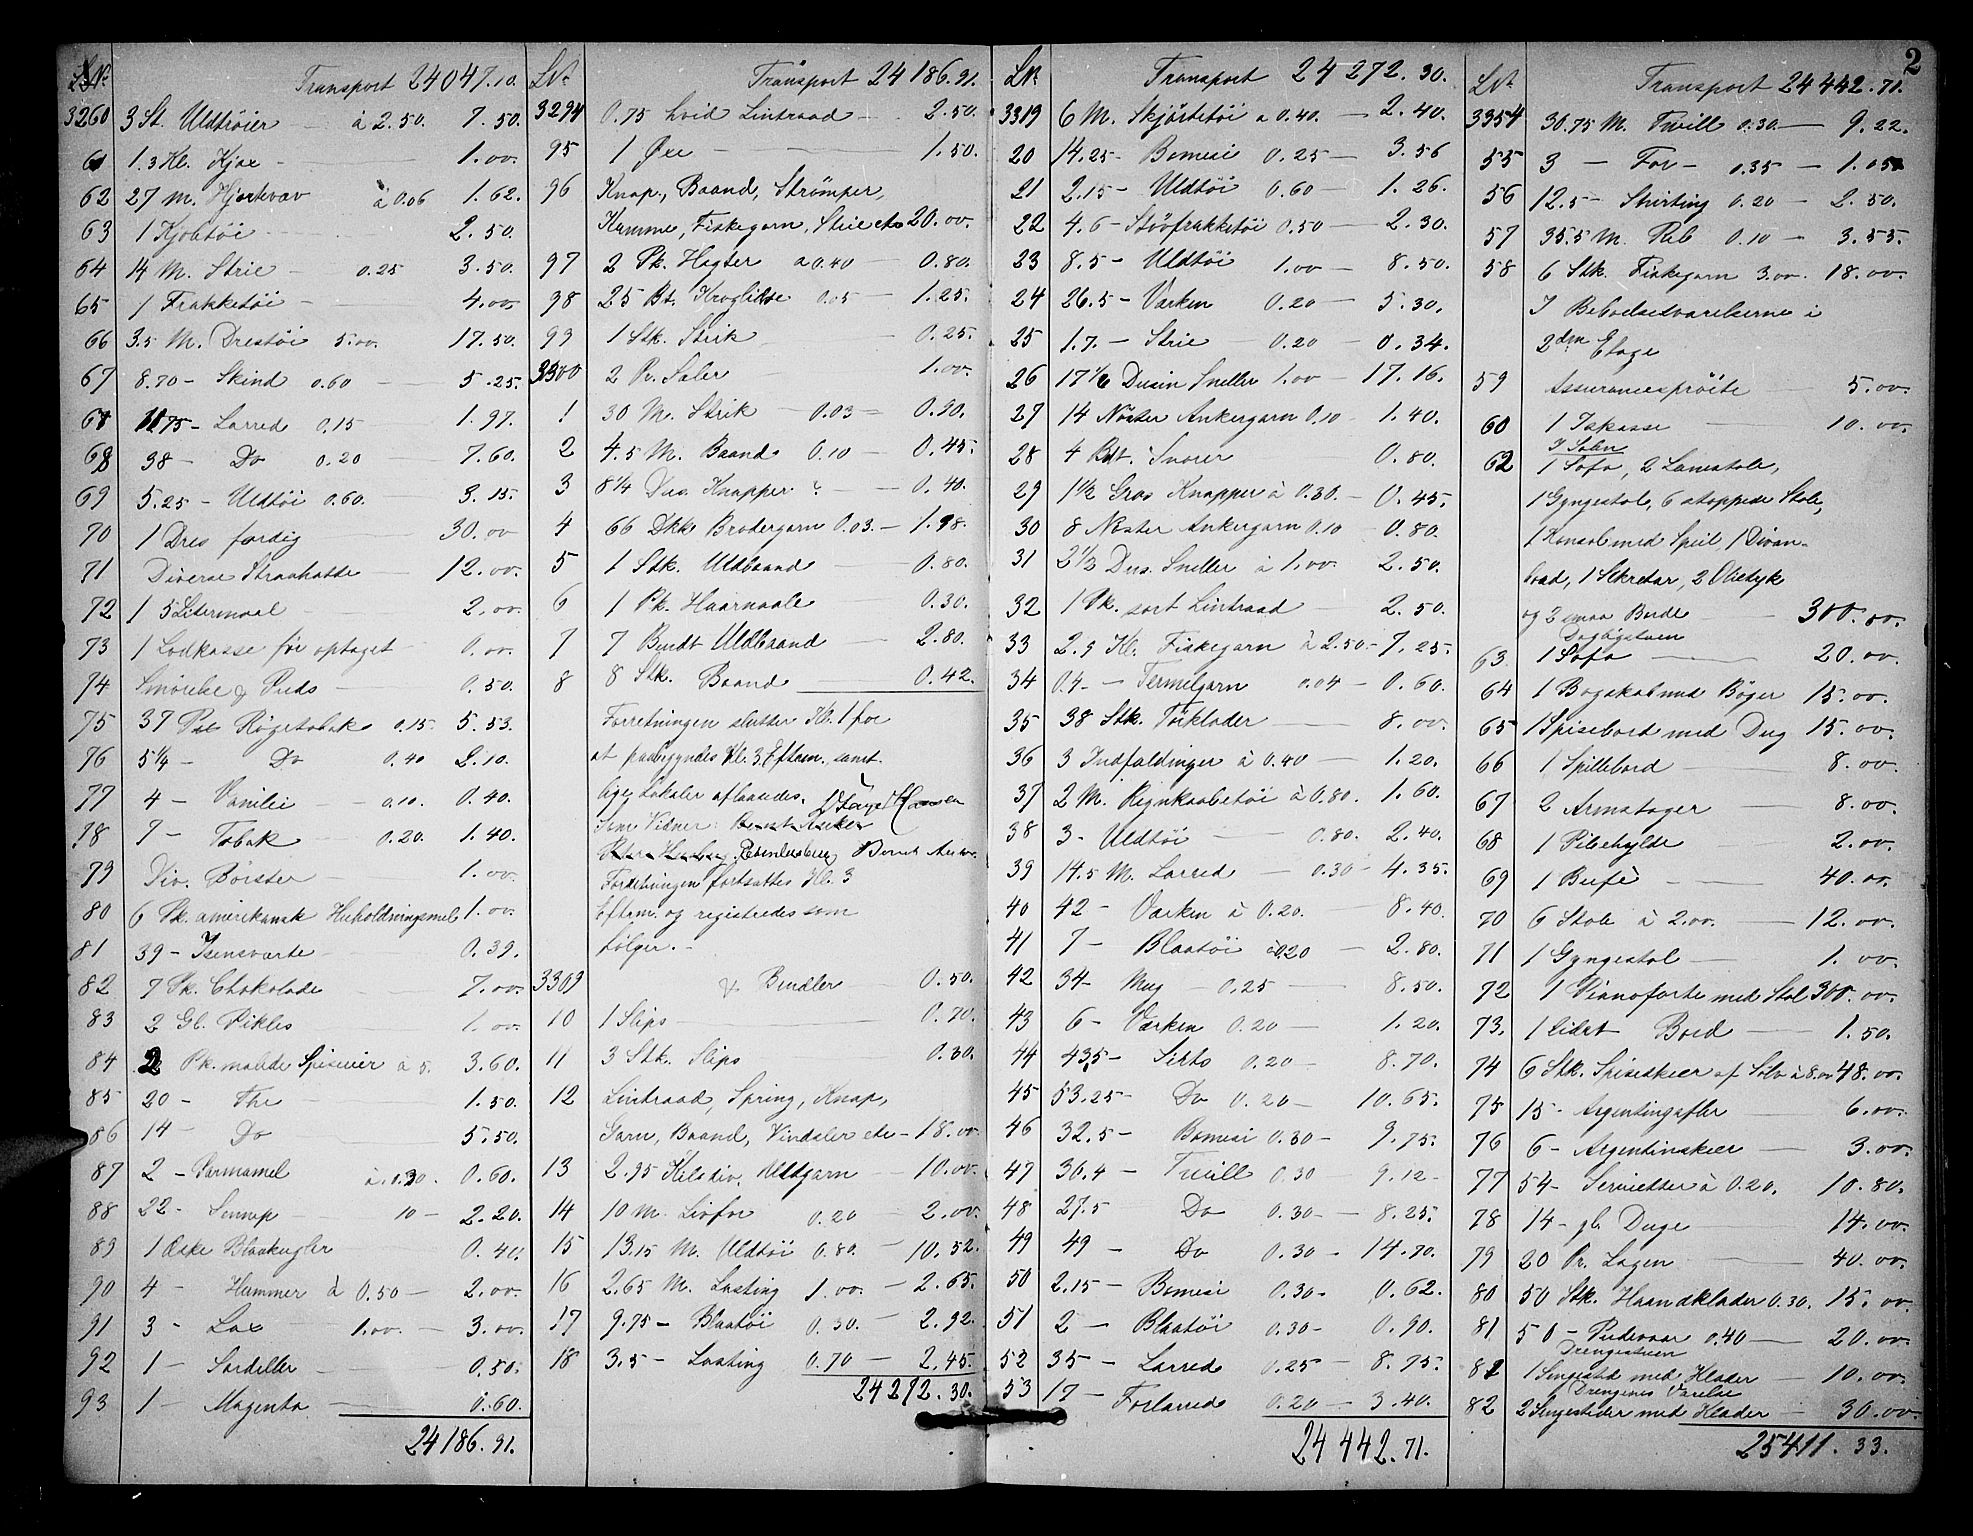 2
LNr. Transport 24047.10.
3260 3 St. Uldtrøier — à 2.50. 7.50.
61 1.3 Kl. Kjæ - — 1.00.
62 27 M. Hjortevæv à 0.06 1.62.
63 1 Kjoletøi 2.50.
64 14 M. Strie — 0.25 3.50.
65 1 Frakketøi — 4.00.
66 3.5 M. Drestøi 5.00. 17.50.
67 8.70 - Skind 0.60 — 5.25.
68 1175 - Lærred 0.15 — 1.97.
68 38 - Do 0.20 — 7.60.
69 5.25 - Uldtøi 0.60. 3.15.
70 1 Dres færdig — 30.00
71 Diverse Straahatte — 12.00.
72 1 5 Litermaal — 2.00.
73 1 Lodkasse før optaget — 0.00.
74 Smørelse & Puds — 0.50.
75 37 Pk Røgetobak 0.15. 5.53.
76 5¼ - Do 0.40 2.10.
77 4 - Vanilie — 0.10. 0.40.
78 7 - Tobak 0.20. 1.40.
79 Div. Børster — 1.00.
80 6 Pk. amerikansk Husholdningsmel 1.00.
81 39 - Isensværte — 0.39.
82 7 Pk. Chokolade — 7.00.
83 2 Gl. Pikles 1.00.
84 2 Pk. malede Spiserier à 5. 3.60.
85 20 - The — 1.50.
86 14 - Do 5.50.
87 2 - Parmamel à 0.30. 0.60.
88 22 - Sennep 10 — 2.20.
89 1 Æske Blaakugler 0.40.
90 4 - Hummer à 0.50 — 2.00.
91 3 - Lax 1.00. — 3.00.
92 1 - Sardeller 0.50.
93 1 - Magenta 0.60.
24186.91.
LNr Transport 24186.91.
3294 0.75 hvid Lintraad — 2.50.
95 1 Øxe — 1.50.
96 Knap, Baand, Strømper,
Kamme, Fiskegarn, Strie etc 20.00.
97 2 Pk. Hægter à 0.40 — 0.80.
98 25 Bt. Kroglidse 0.05 — 1.25.
99 1 Stk. Strik 0.25.
3300 2 Pr. Saler — 1.00.
1 30 M. Strik — 0.03 = 0.90.
2 4.5 M. Baand 0.10 — 0.45.
3 8¼ Dus. Knapper — 0.40.
4 66 Dkk Brodergarn 0.03 — 1.98.
5 1 Stk. Uldbaand — 0.80.
6 1 Pk. Haarnaale 0.30.
7 7 Bundt Uldbaand — 2.80.
8 8 Stk. Baand — 0.42.
Forretningen slutter Kl. 1 for
at paabegyndes Kl. 3 Eftm., samt-
lige Lokaler aflaasedes.
Som Vidner:
Forretningen fortsattes Kl. 3
Eftem. og registredes som
følger. -
3309 & Bendler — 0.50.
10 1 Slips — 0.70.
11 3 Stk. Slips 0.30.
12 Lintraad, Spring, Knap,
Garn, Baand, Vindsler etc — 18.00
13 2.95 Kilo div. Uldgarn — 10.00.
14 10 M. Livfor 0.20 — 2.00.
15 13.15 M. Uldtøi 0.80. — 10.52.
16 2.65 M. Lasting 1.00. — 2.65.
17 9.75 - Blaatøi 0.30. — 2.92.
18 3.5 - Lasting 0.70 — 2.45.
24272.30.
LNr. Transport 24272.30.
3319 6 M. Skjørtetøi a 0.40. — 2.40.
20 14.25 - Bomesi 0.25 — 3.56
21 2.15 - Uldtøi 0.60 — 1.26.
22 4.6 - Støvfrakketøi 0.50 — 2.30.
23 8.5 - Uldtøi 1.00 — 8.50.
24 26.5 - Værken 0.20 — 5.30.
25 1.7. - Strie — 0.20 — 0.34.
26 17 1/6 Dusin Sneller 1.00 — 17.16.
27 14 Nøster Ankergarn 0.10 - 1.40.
28 4 Bdt. Snorer 0.80.
29 1½ Gros Knapper à 0.30. — 0.45.
30 8 Nøster Ankergarn 0.10 — 0.80.
31 2½ Dus. Sneller à 1.00. 2.50.
32 1 Pk. sort Lintraad — 2.50.
33 2.9 Kl. Fiskegarn à 2.50. - 7.25.
34 0.4. - Termelgarn 0.04 — 0.60.
35 38 Stk. Tørklæder — 8.00.
36 3 Indfaldinger à 0.40 — 1.20.
37 2 M. Regnkaabetøi à 0.80. 1.60.
38 3 - Uldtøi — 0.80. 2.40.
39 14.5 M. Lærred — 0.30 — 4.35.
40 42 - Værken à 0.20. — 8.40.
41 7 - Blaatøi à 0.20 — 2.80.
42 34 - Mug — 0.25 — 8.50.
43 6 - Værken 0.20 — 1.20.
44 43.5 - Sirts 0.20 — 8.70.
45 53.25 - Do 0.20 — 10.65.
46 32.5 - Bomesi 0.30 - 9.75.
47 30.4 - Tvill 0.30 — 9.12 -
48 27.5 Do 0.30. — 8.25.
49 49 - Do 0.30 — 14.70.
50 2.15 - Bomesi 0.30 - 0.62.
51 2 - Blaatøi 0.30 - 0.90.
52 35 - Lærred 0.25 — 8.75.
53 17 - Forlærred 0.20 — 3.40.
24442.71.
LNr Transport 24442.71.
3354 30.75 M. Tvill 0.30 — 9.22.
55 3 - For - 0.35 — 1.05
56 12.5 - Shirting 0.20 — 2.50.
57 35.5 M. Reb 0.10 — 3.55.
58 6 Stk. Fiskegarn 3.00. 18.00.
I Beboelsesværelserne i
2den Etage
59 Assurancesprøite — 5.00.
60 1 Iskasse — 10.00.
I Salen
62 1 Sofa, 2 Lænestole,
1 Gyngestol, 6 stoppede Stole,
1 Konsol med Speil, 1 Divan-
bord, 1 Sekretær, 2 Olietryk
og 2 smaa Borde — 300.00.
Dagligstuen
63 1 Sofa — 20.00.
64 1 Bogskab med Bøger 15.00.
65 1 Spisebord med Dug 15.00.
66 1 Spillebord — 8.00.
67 2 Armstager — 8.00.
68 1 Pibehylde — 2.00.
69 1 Bufè — 40.00.
70 6 Stole à 2.00. — 12.00.
71 1 Gyngestol — 1.00.
72 1 Pianoforte med Stol 300.00.
73. 1 lidet Bord — 1.50.
74 6 Stk. Spiseskeer af Sølv à 8.00 48.00.
75 15 - Argentingafler — 6.00.
76 6 - Argentinskeer — 3.00.
77 54 - Servietter à 0.20. 10.80.
78 14 - gl. Duge — 14.00.
79 20 Pr. Lagen — 40.00.
80 50 Stk. Haandklæder 0.30. 15.00.
81 50 - Pudevaar 0.40 — 20.00.
Drengestuen
82 1 Sengested med Klæder — 10.00.
Drengenes Værelse
82 2 Sengesteder med Klæder — 30.00.
25411.33.